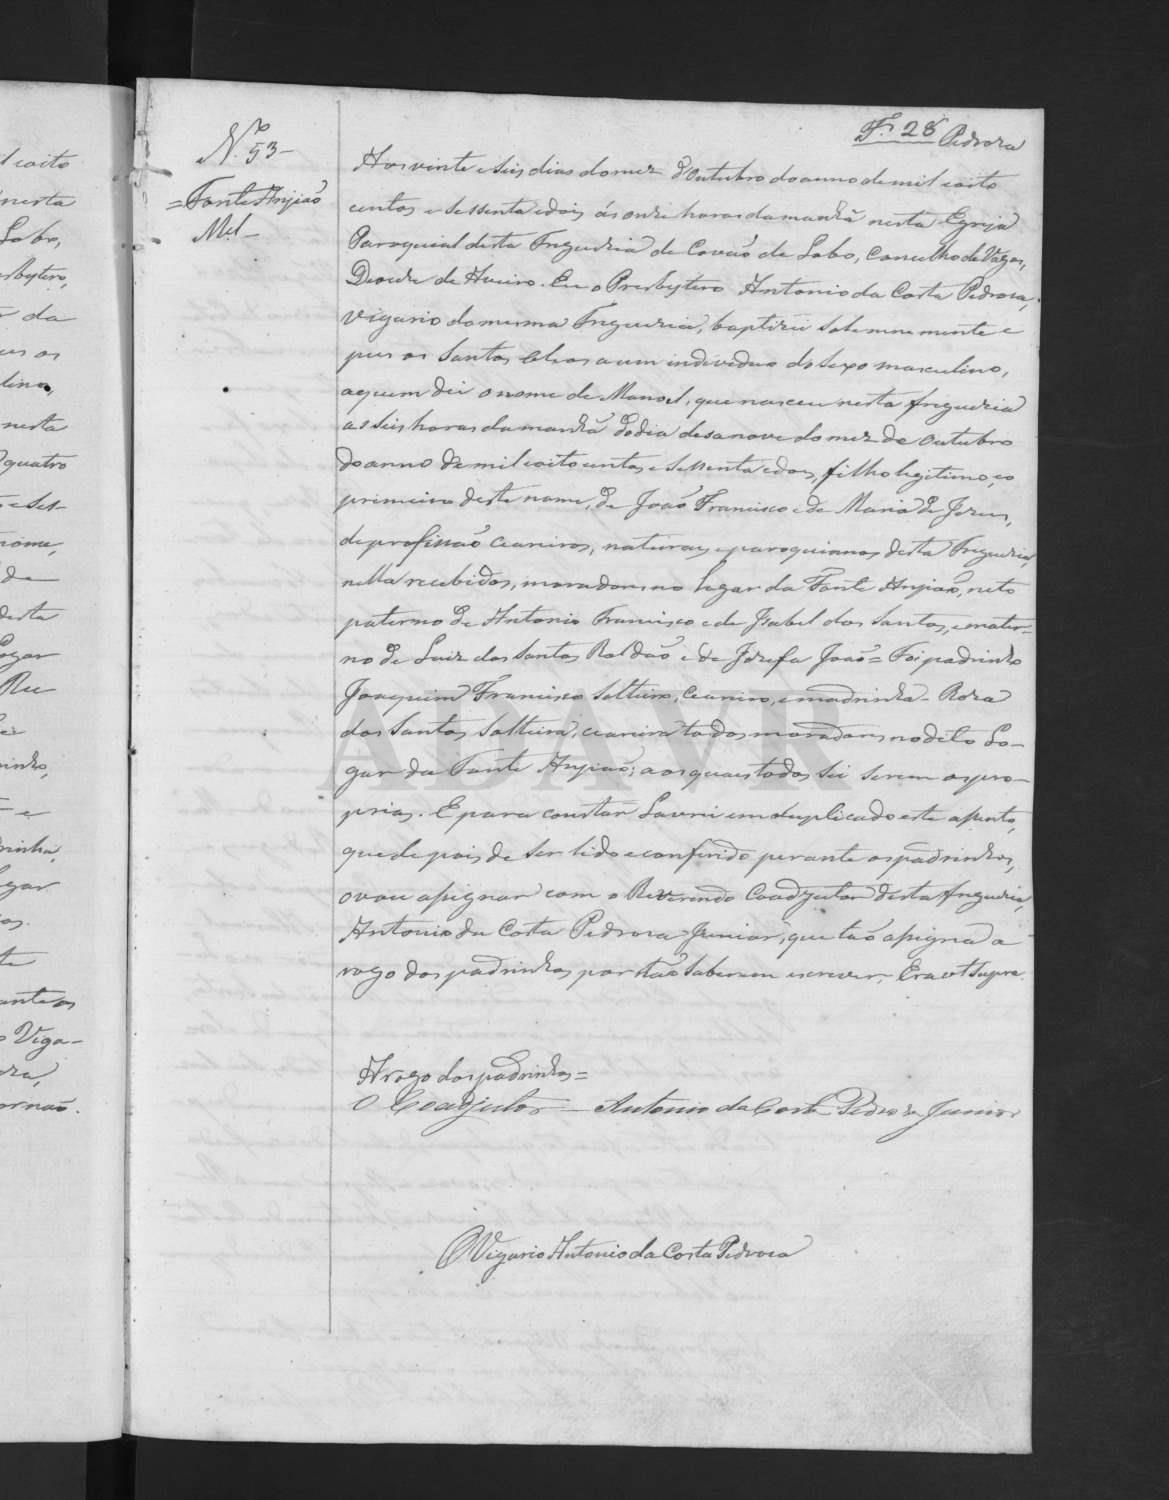 F. 28 Pedroza
N.º 53-
=Fonte Anjião
Mel-
Aos vinte e seis dias do mez d'Outubro do anno de mil e oito
centos e sessenta e dois ás onze horas da manhã nesta Egreja
Paroquial desta Freguezia de Covão de Lobo, Concelho de Vagos,
Diocese de Aveiro. Eu o Presbytero Antonio da Costa Pedroza,
Vigario da mesma Freguezia, baptizei solemnemente e
pus os Santos Oleos a um individuo do sexo masculino,
a quem dei o nome de Manoel, que nasceu nesta freguezia
as seis horas da manhã do dia desanove do mez de Outubro
do anno de mil e oito centos e sessenta e dois, filho legitimo, e o
primeiro deste nome, de João Francisco e de Maria de Jezus,
de profissão ceareiros, naturaes e paroquianos desta Freguezia,
nella recebidos, moradores no Lugar da Fonte Anjião, neto
paterno de Antonio Francisco e de Izabel dos Santos, e mater-
no de Luiz dos Santos Roldão e de Jozefa João= Foi padrinho
Joaquim Francisco solteiro, Ceareiro, e madrinha- Roza
dos Santos solteira, ceareira todos moradores no dito Lo-
gar da Fonte Anjião; aos quaes todos sei serem os pro-
prios. E para constar Lavrei em duplicado este assento,
que depois de ser lido e conferido perante os padrinhos,
o vou assignar com o Reverendo Coadjutor desta freguezia,
Antonio da Costa Pedroza Junior, que tão assigna a
rogo dos padrinhos por não saberem escrever. Era ut supra.
A rogo dos padrinhos=
O Coadjutor - Antonio da Costa Pedroza Junior
O Vigario Antonio da Costa Pedroza
ADAVR
il e oito
nesta
Lobo,
esbytero,
da
nesta
quatro
nome,
de
desta
inho,
rinha,
gar
Viga-